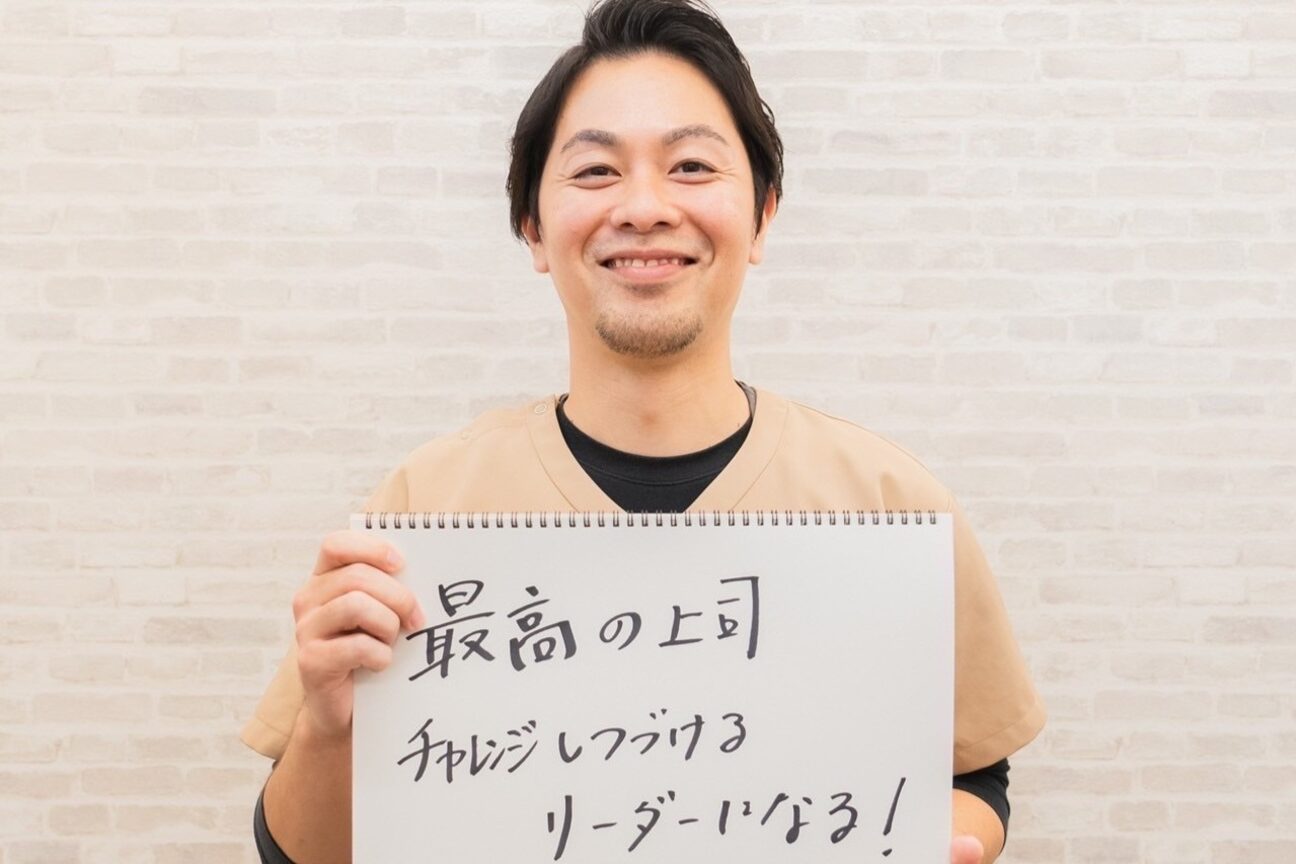 最高の上司
チャレンジしつづける
リーダーになる!